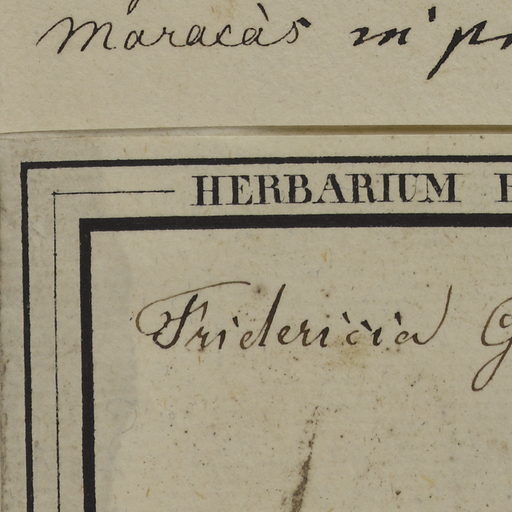 Maracàs in
HERBARIUM
Fridericia